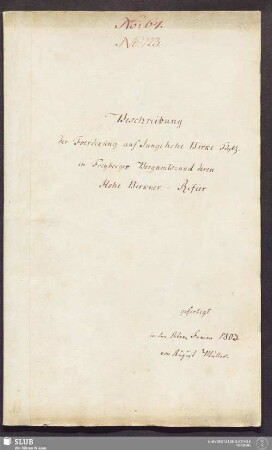 No: 64.
N. 123.
Beschreibung
der Foerderung auf Junge hohe Birke Fdgb.
in Freyberger Bergamts und deren
Hohe Birkner - Refier
gefertigt
1803
von August Müller.
SLUB
Wir führen Wissen.